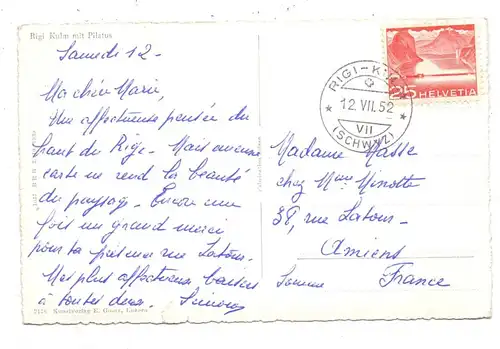 Rigi Kulm mit Pilatus
Samedi 12 -
Ma chère Marie,
Une affectueuse pensée du
haut du Rigi - Mais aucune
carte ne rend la beauté
du paysage. Encore une
fois un grand merci
pour ta présence rue Latour.
Mes plus affectueux baisers
à toutes deux. Simone
7126 Kunstverlag E. Goetz, Luzern
HELVETIA
25
RIGI-KULM
12. VII. 52
VII
(SCHWYZ)
Madame Masse
chez Mme Minotte
38, rue Latour -
Amiens
Somme France